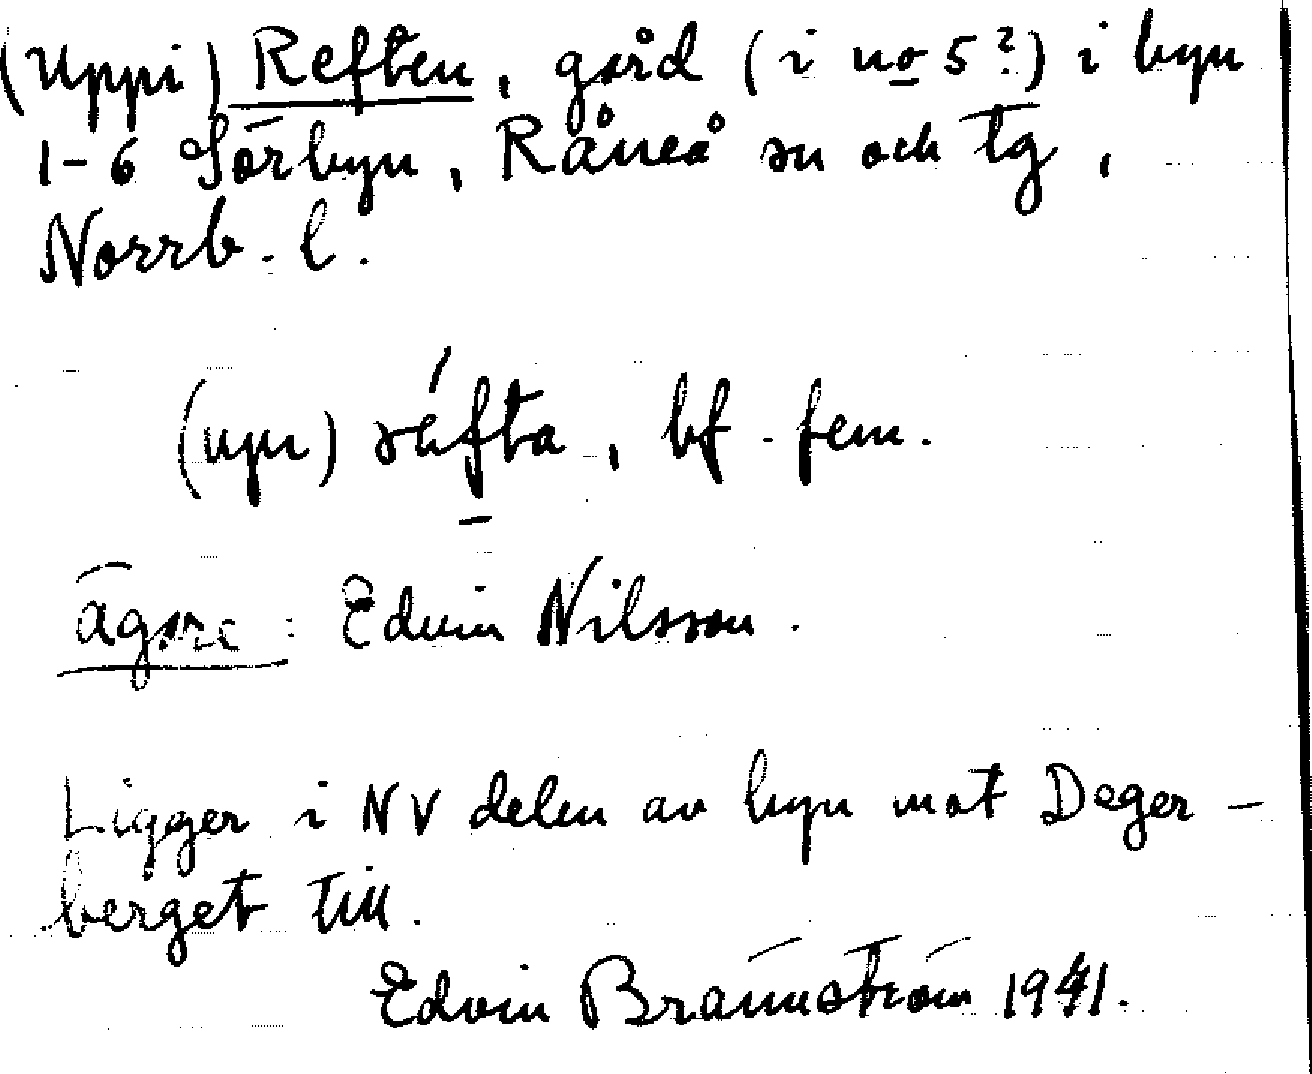 (Uppi) Reften, gård (i no 5?) i byn
1-6 Sörbyn, Råneå sn och tg,
Norrb. l.
(upı) ráfta, bf. fem.
ägare: Edvin Nilsson.
Ligger i NV delen av byn mot Deger-
berget till.
Edvin Brännström 1941.